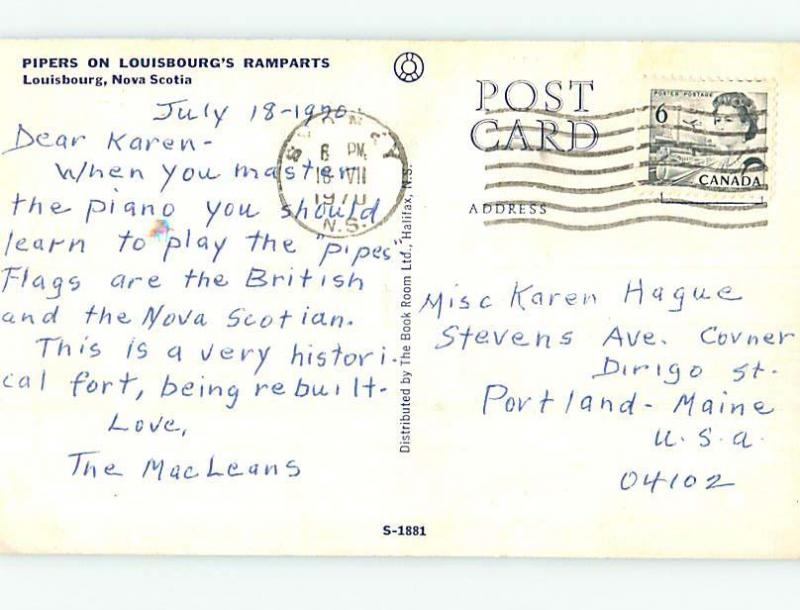 PIPERS ON LOUISBOURG'S RAMPARTS
Louisbourg, Nova Scotia
July 18-1970
Dear Karen-
When you master
the piano you should
learn to play the "pipes".
Flags are the British
and the Nova Scotian.
This is a very histori-
cal fort, being rebuilt-
Love,
The MacLeans
S-1881
Distributed by The Book Room Ltd., Halifax, N.S.
6 PM
18 VII
1970
N.S.
POST
CARD
ADDRESS
POSTES POSTAGE
6
CANADA
Misc Karen Hague
Stevens Ave. Corner
Dirigo St.
Portland- Maine
U.S.A.
04102